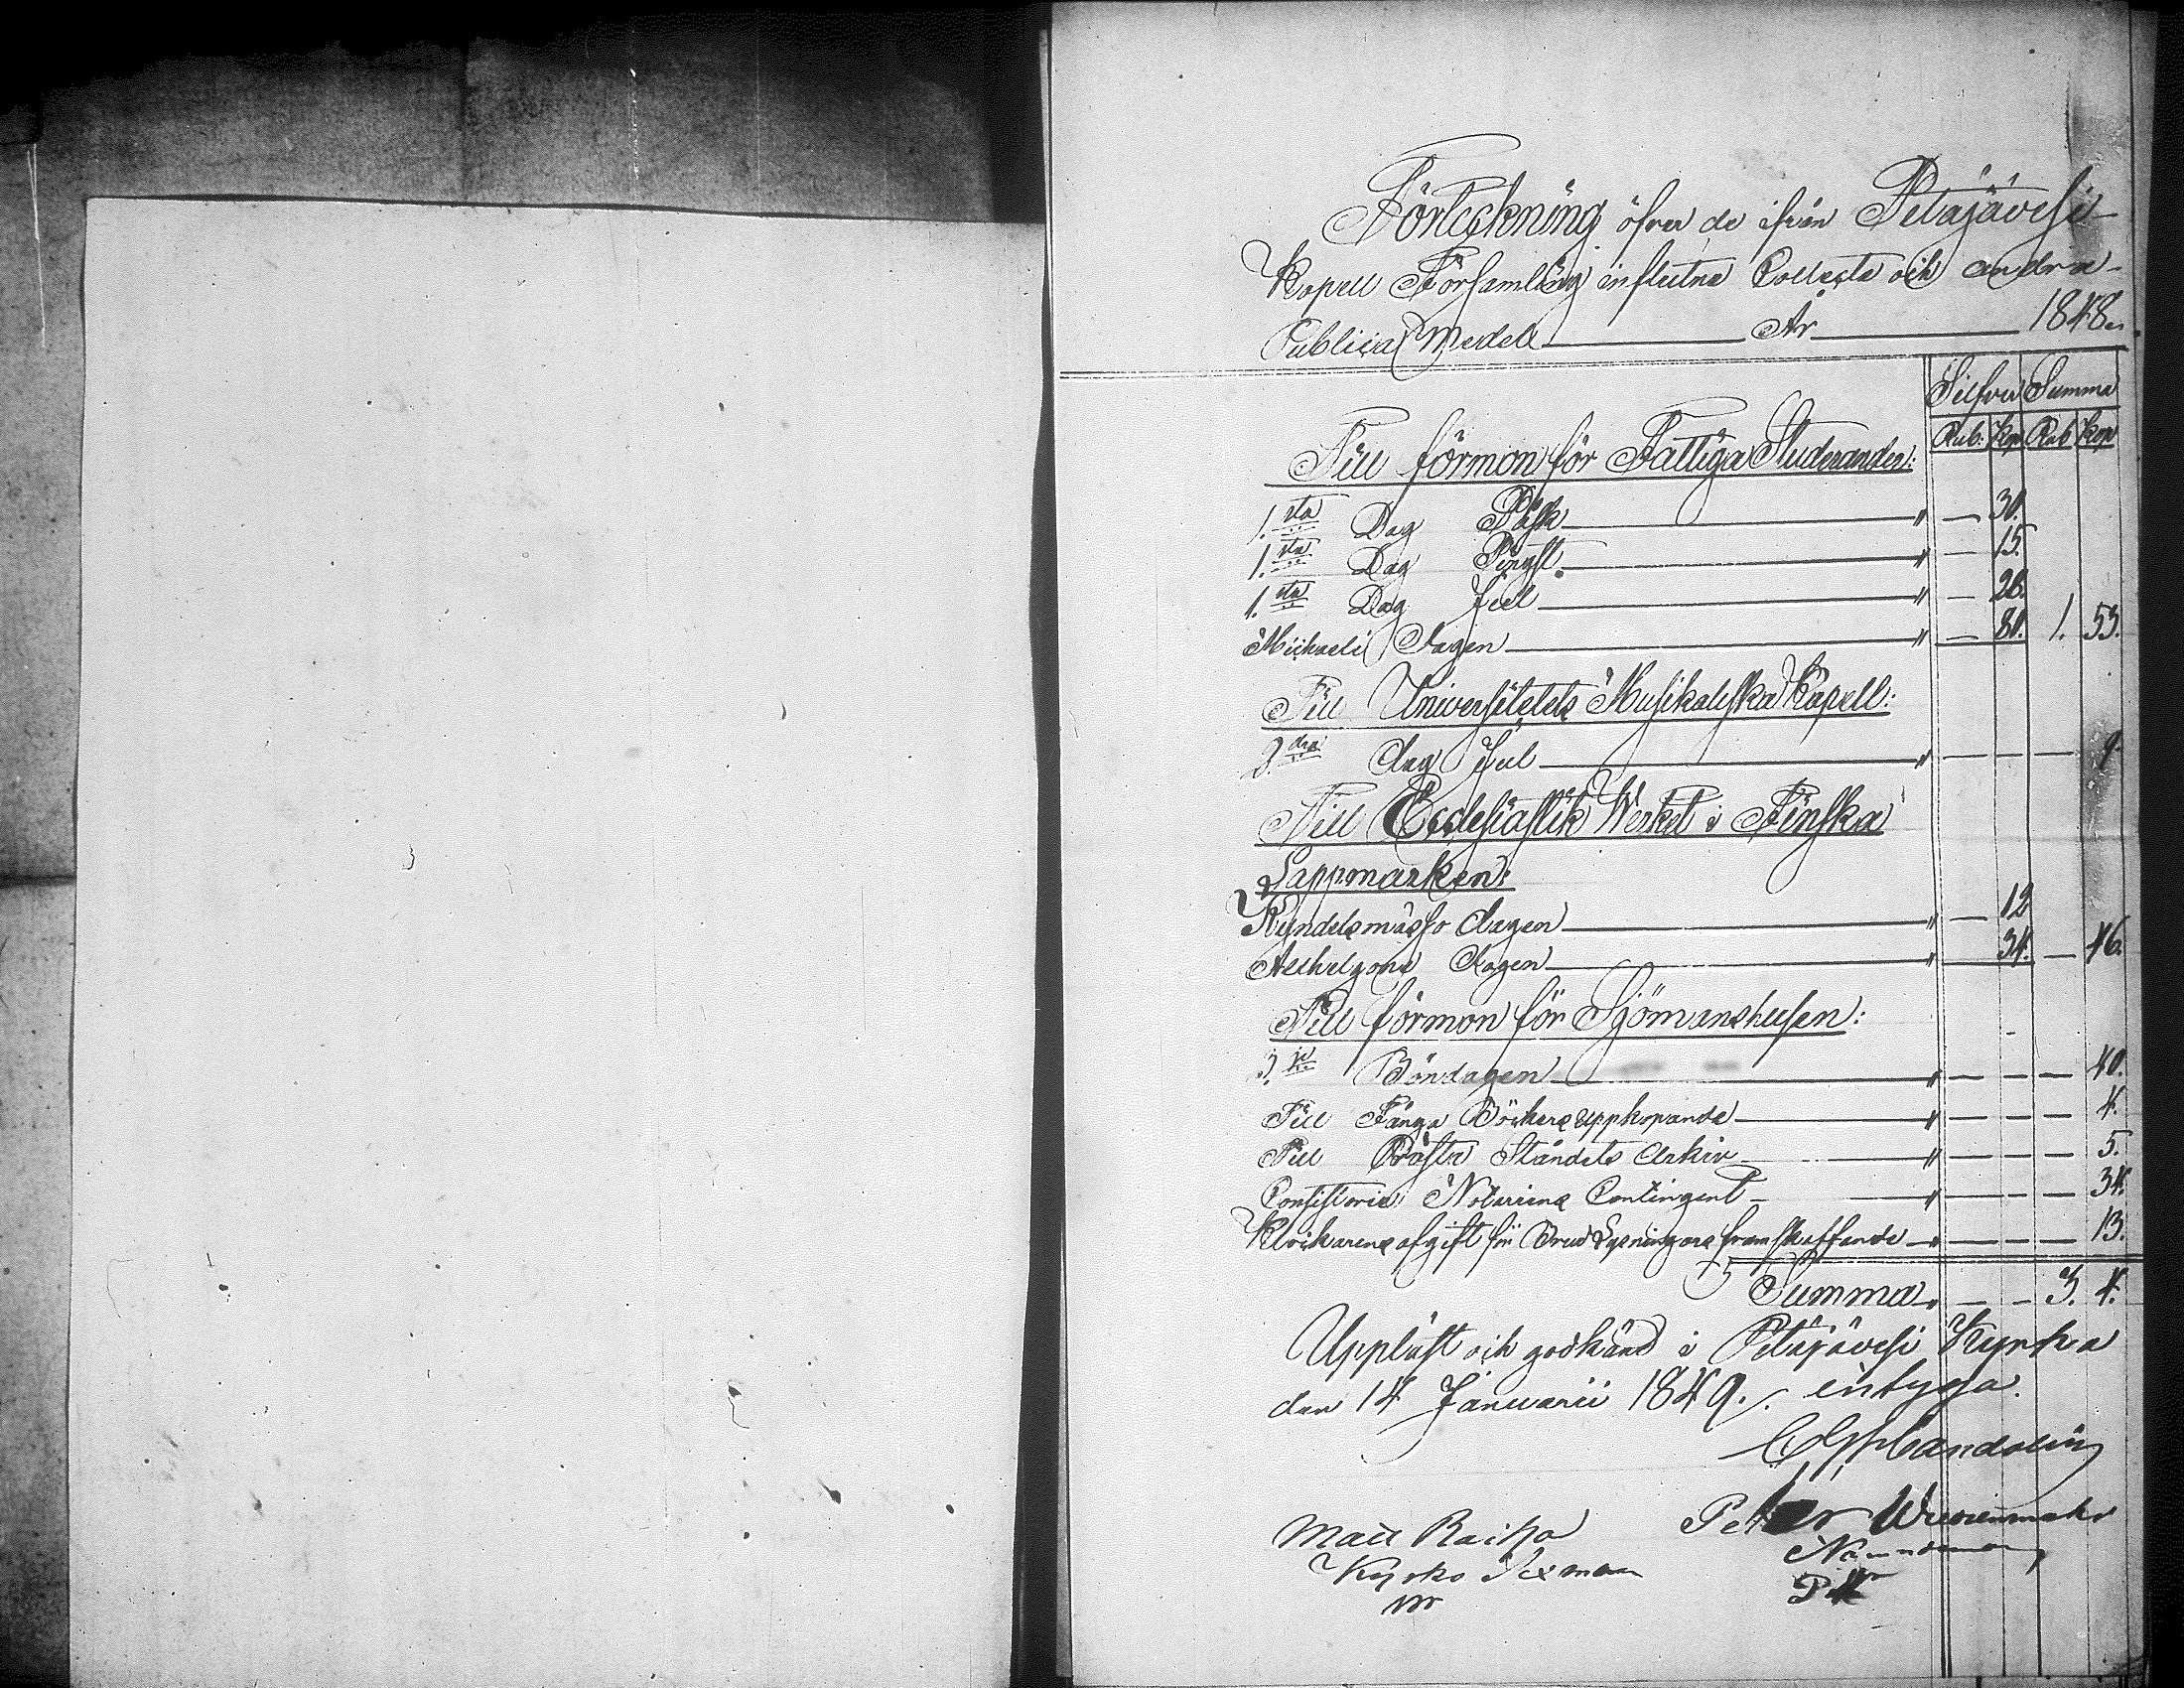 Förteckning öfver de ifrån Petäjävesi
Kapell Församling influtna Collecta och andra
Publica Medel År 1848.
Silfver Summa
Rub. Kop. Rub Kop
Till förmon för Fattiga Studerander:
1.sta Dag Påsk " — 30.
1.sta Dag Pingst " — 15.
1.sta Dag Jul " — 28.
Michaeli Dagen " — 80. 1. 53.
Till Universitetets Musikaliska Kapell:
2.dra dag Jul " — — — 9.
Till Ecclesiastik Werket i Finska
Lappmarken:
Kyndelsmässo dagen " — 12
Allhelgona dagen " — 34. — 46.
Till förmon för Sjömanshusen:
3.je Böndagen " — — — 40.
Till Fånga Böckers uppköpande " — — — 4.
Till Präste Ståndets Arkiv " — — — 5.
Consistorie Notariens Contingent " — — — 34.
Klockarens afgift för Brud Lysningars framskaffande " — — — 13.
Summa " — — 3. 4.
Uppläst och godkänd i Petäjävesi Kyrka
den 14 Januarii 1849. intyga.
Candolin
Matt Raiha Petter
Kyrko Sexman Nämndeman